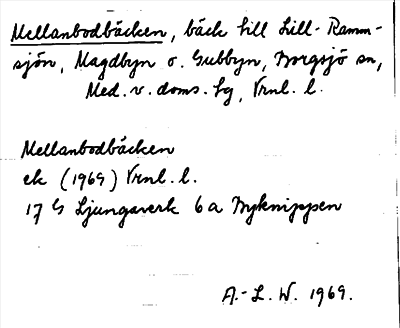 Mellanbodbäcken, bäck till Lill-Ramm-
sjön, Magdbyn o. Gubbyn, Borgsjö sn,
Med. v. doms. hg, Vrnl. l.
Mellanbodbäcken
ek (1969) Vrnl. l.
17 G Ljungaverk 6 a Byknippen
A.-L. W. 1969.